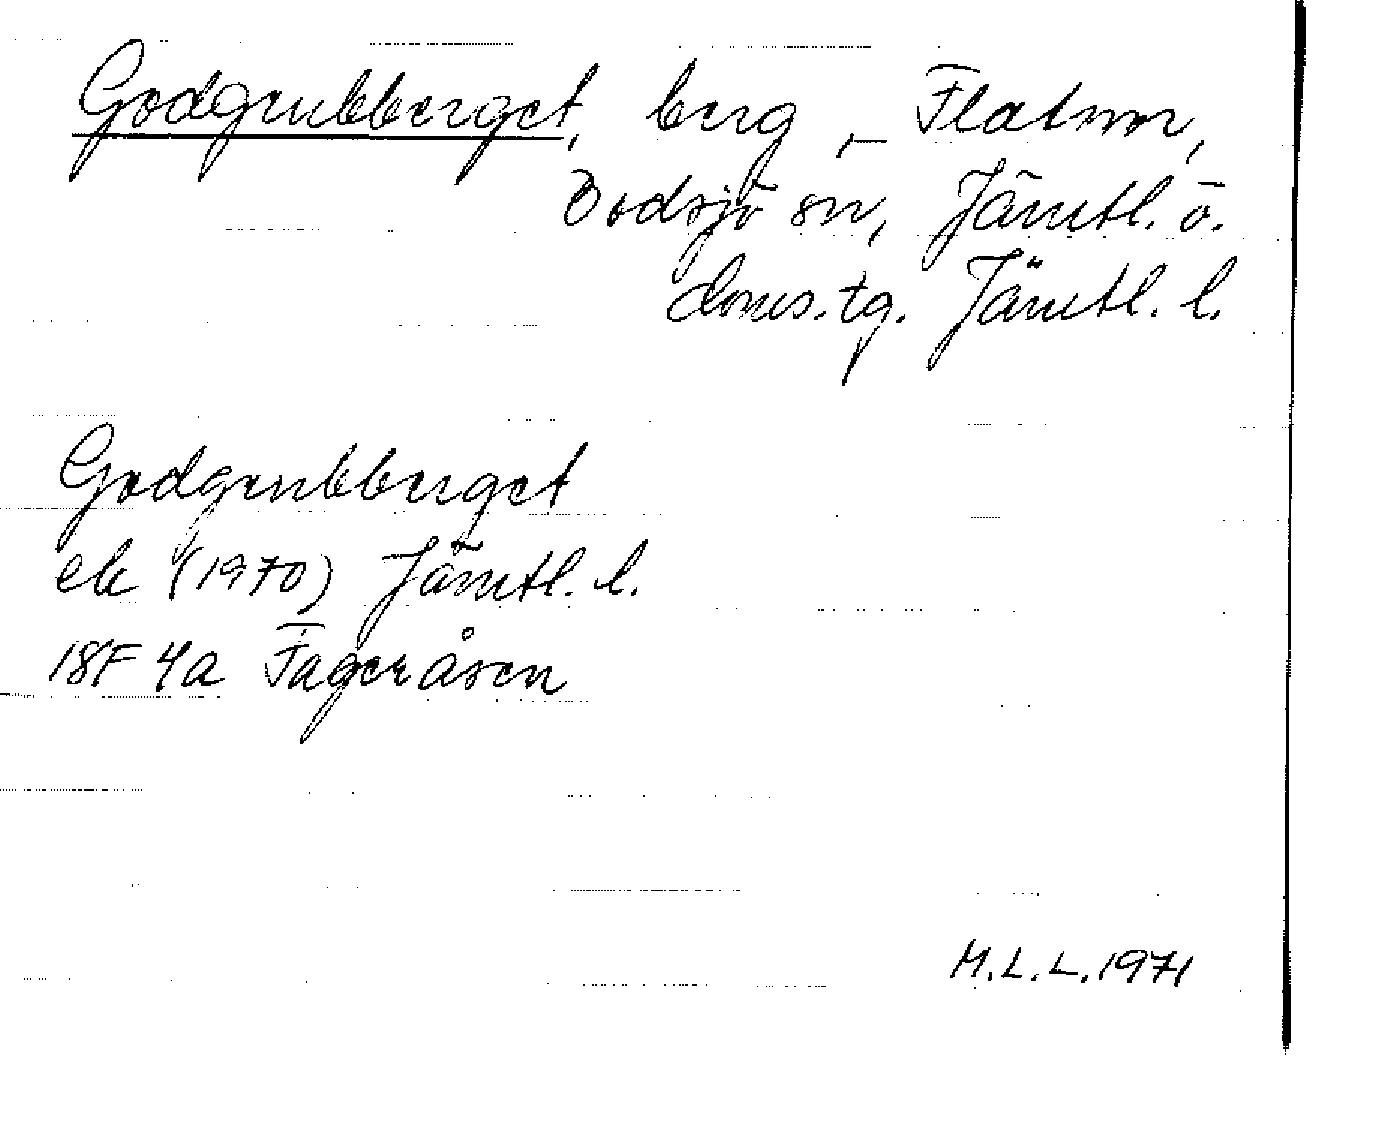 Godgrubberget, berg, – Flatnor,
Bodsjö sn, Jämtl. ö.
doms.tg. Jämtl. l.
Godgrubberget
ek (1970) Jämtl. l.
18F 4a Fageråsen
M.L.L. 1971